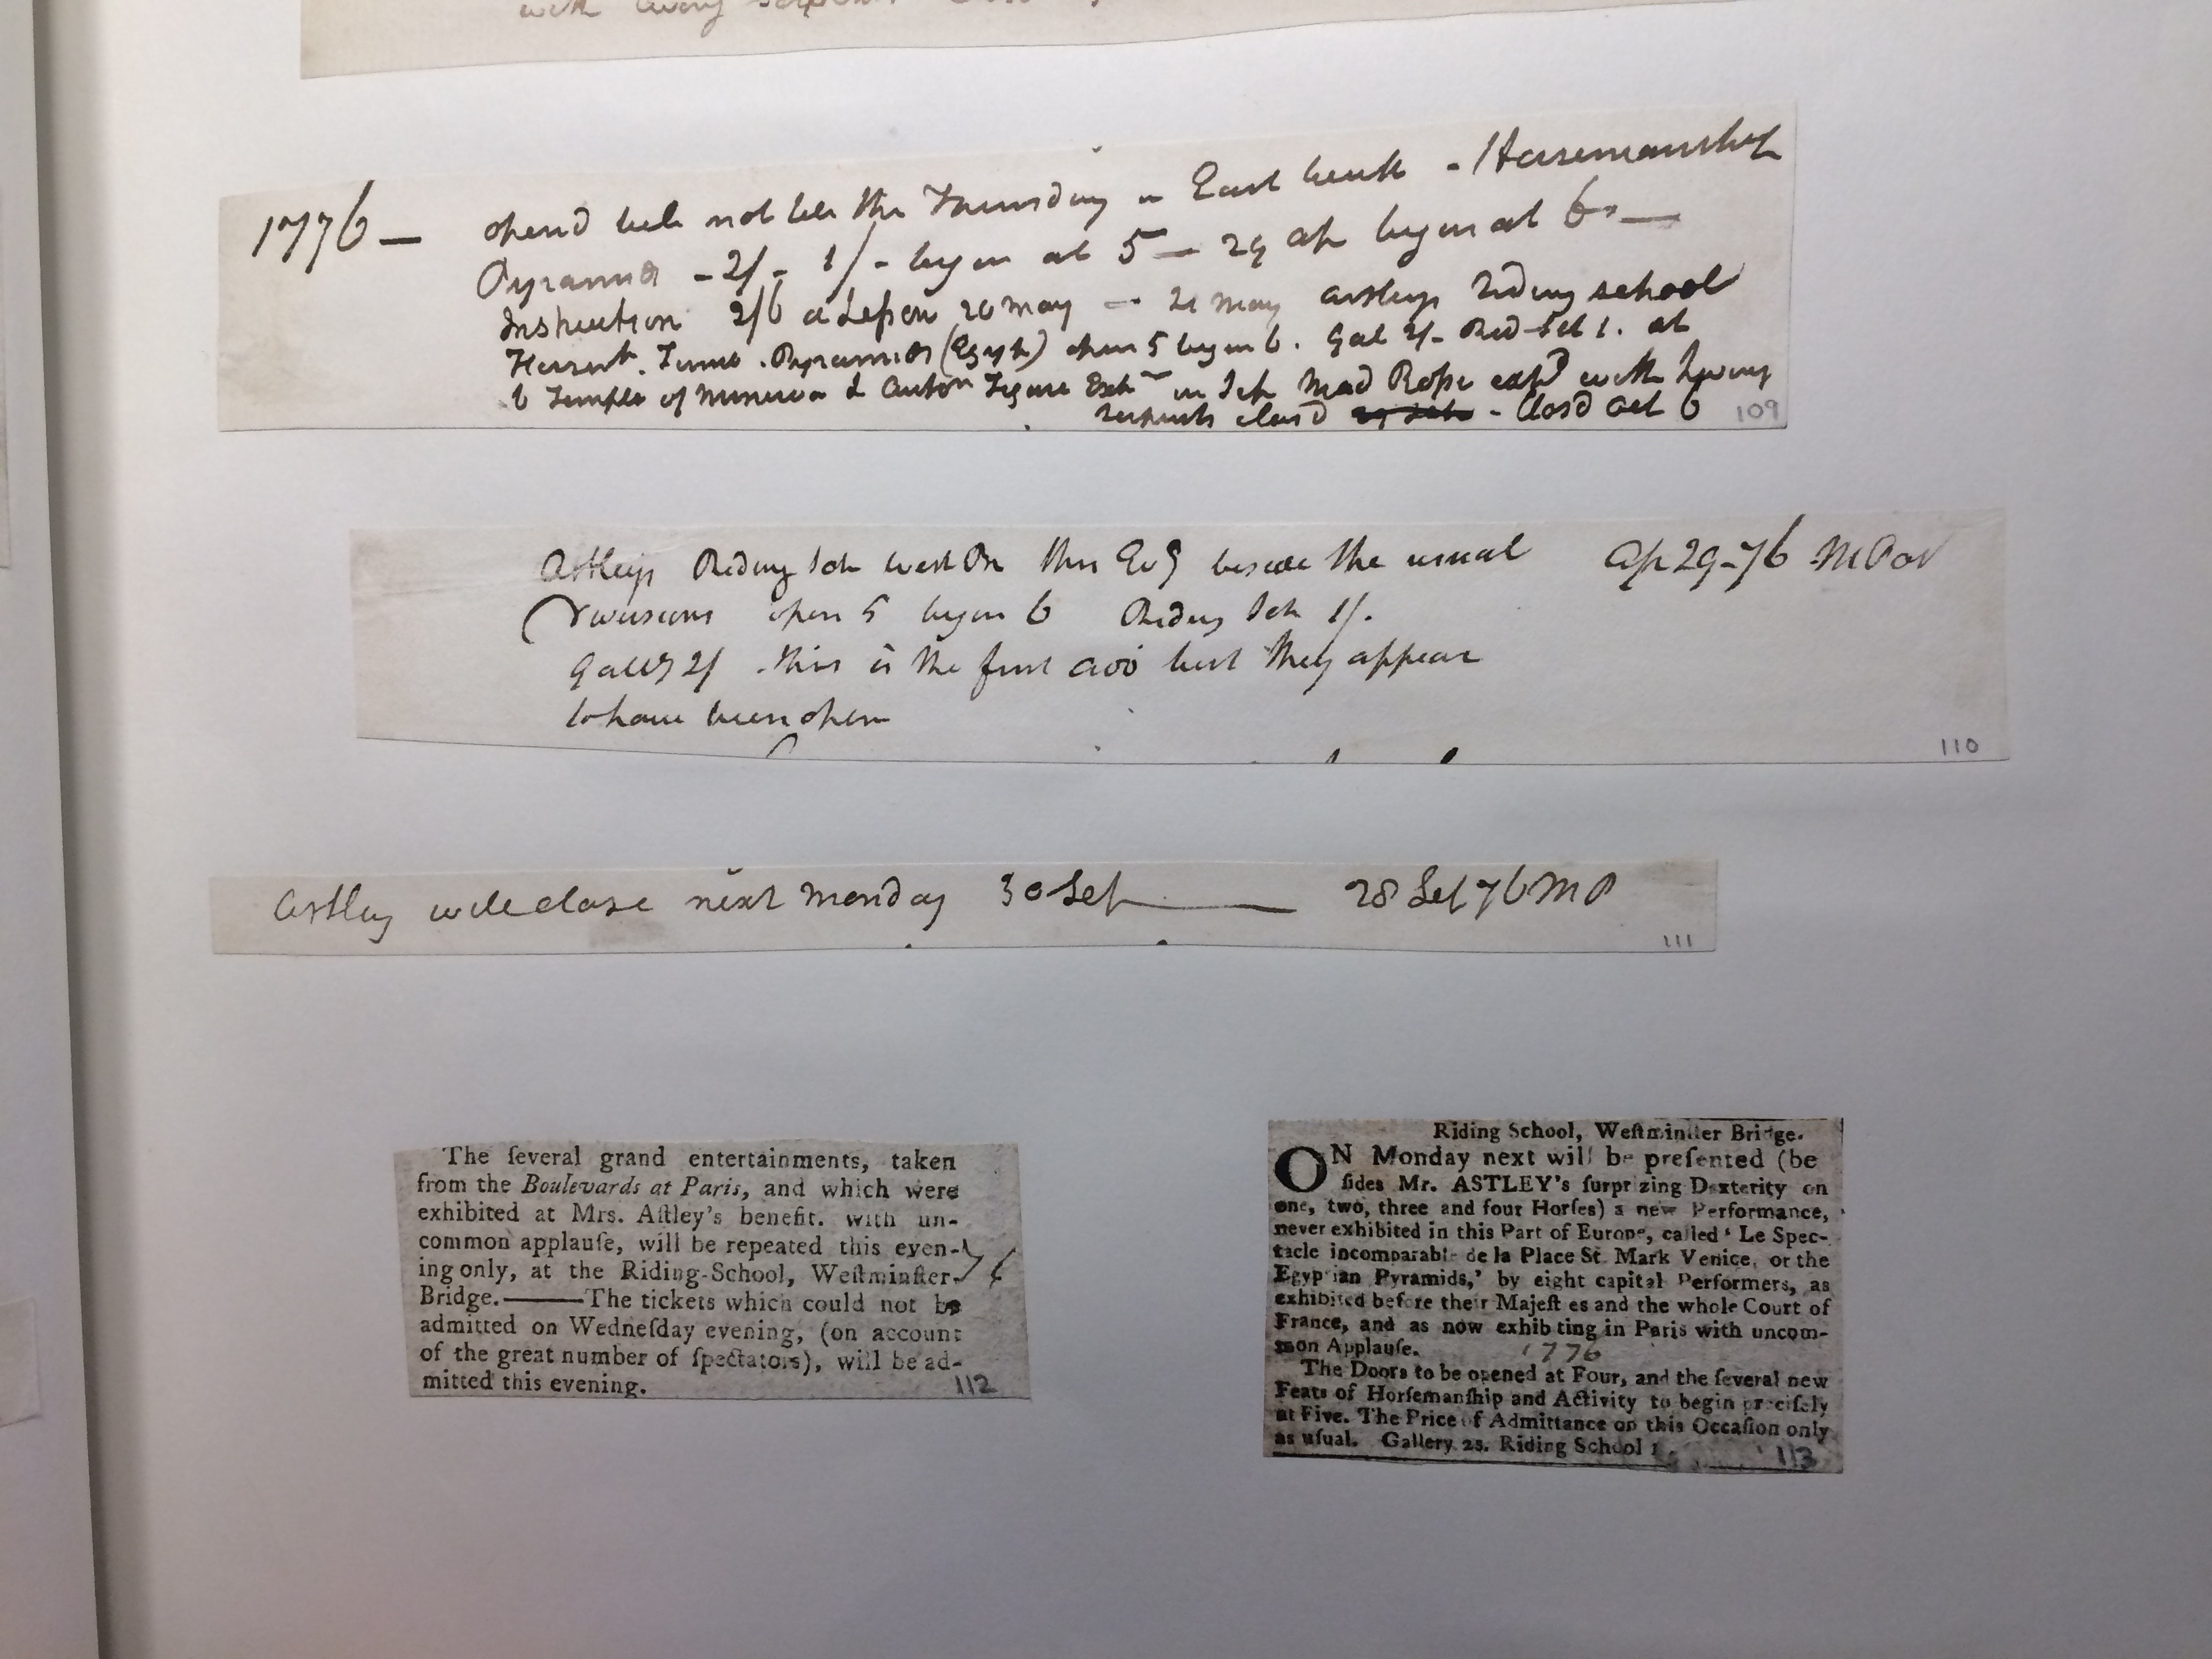 with living serpents
1776 — opend but not till the Thursday in East week - Horsemanship
Pyramids - 2/- 1/- begin at 5 — 29 ap begin at 6 —
Instruction 2/6 a Lesson 20 may — 21 may astleys Riding school
Horsem. Tumb. Pyramids (Egypt) open 5 begin 6. Gal 2/- Rid Sch 1. at
6 Temple of Minerva & Autom Figure Exhn in Sep Mad Rope exhd with living
serpents closd - closd Oct 6
109
Astleys Riding Sch West Br this Evg beside the usual Ap 29-76 M Pos
Diversions open 5 begin 6 Riding Sch 1/.
Gally 2/ this is the first but they appear
to have been open
110
Astley will close next Monday 30 Sep — 28 Sep 76 M P
111
The ſeveral grand entertainments, taken
from the Boulevards at Paris, and which were
exhibited at Mrs. Aſtley's benefit. with un-
common applauſe, will be repeated this even-
ing only, at the Riding-School, Weſtminſter- 76
Bridge.———The tickets which could not be
admitted on Wedneſday evening, (on account
of the great number of ſpectators), will be ad-
mitted this evening.
112
Riding School, Weſtminſter Bridge.
ON Monday next will be preſented (be
ſides Mr. ASTLEY's ſurprizing Dexterity on
one, two, three and four Horſes) a new Performance,
never exhibited in this Part of Europe, called ' Le Spec-
tacle incomparable de la Place St. Mark Venice, or the
Egyptian Pyramids,' by eight capital Performers, as
exhibited before their Majeſties and the whole Court of
France, and as now exhibiting in Paris with uncom-
mon Applauſe. 1776
The Doors to be opened at Four, and the ſeveral new
Feats of Horſemanſhip and Activity to begin preciſely
at Five. The Price of Admittance on this Occaſion only
as uſual. Gallery 2s. Riding School 1
113